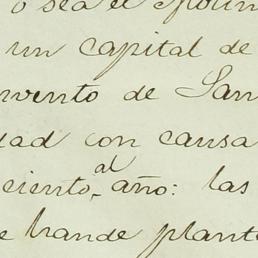 o sea el
un capital de
nvento de San
dad con causa
ciento al año: las
e hande plant